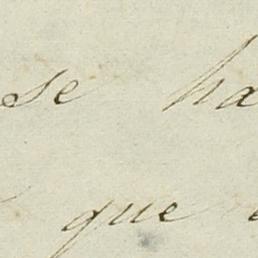 se ha
que